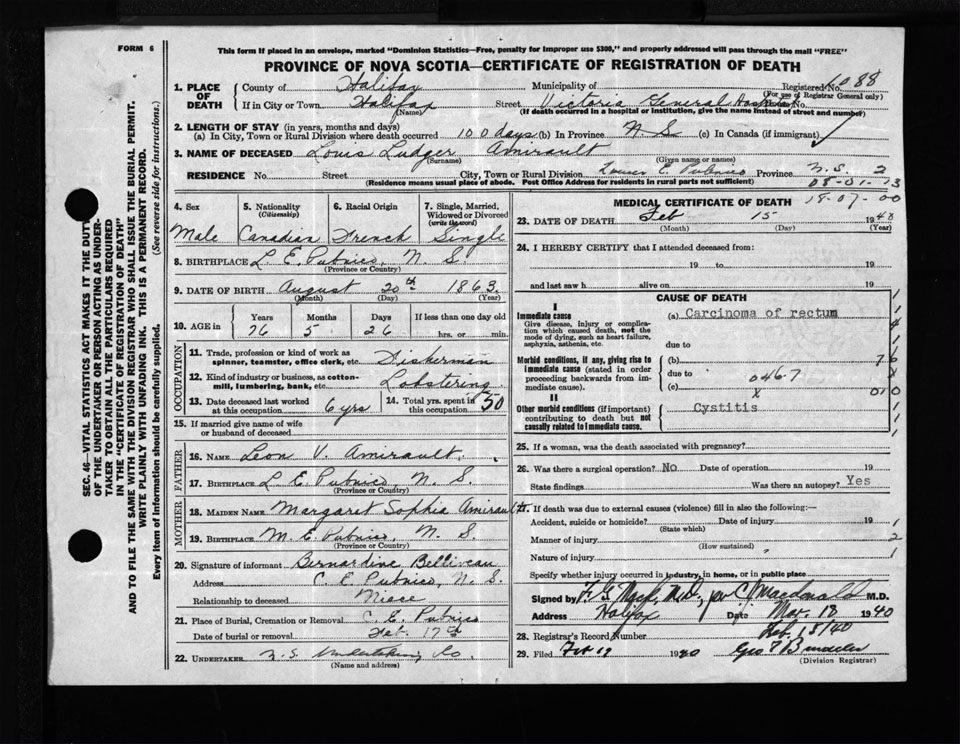 FORM 6
This form if placed in an envelope, marked "Dominion Statistics—Free, penalty for improper use $300," and properly addressed will pass through the mail "FREE"
PROVINCE OF NOVA SCOTIA—CERTIFICATE OF REGISTRATION OF DEATH
SEC. 46—VITAL STATISTICS ACT MAKES IT THE DUTY
OF THE UNDERTAKER OR PERSON ACTING AS UNDER-
TAKER TO OBTAIN ALL THE PARTICULARS REQUIRED
IN THE "CERTIFICATE OF REGISTRATION OF DEATH"
AND TO FILE THE SAME WITH THE DIVISION REGISTRAR WHO SHALL ISSUE THE BURIAL PERMIT.
WRITE PLAINLY WITH UNFADING INK. THIS IS A PERMANENT RECORD.
Every item of information should be carefully supplied. (See reverse side for instructions.)
1. PLACE OF DEATH
County of Halifax Municipality of Registered No. 6088
(For use of Registrar General only)
If in City or Town Halifax Street Victoria General Hospital No.
(Name) (If death occurred in a hospital or institution, give the name instead of street and number)
2. LENGTH OF STAY (in years, months and days)
(a) In City, Town or Rural Division where death occurred 100 days (b) In Province N.S (c) In Canada (if immigrant)
3. NAME OF DECEASED Louis Ludger Amirault
(Surname) (Given name or names)
RESIDENCE No. Street City, Town or Rural Division Lower E. Pubnico Province N.S. 2
(Residence means usual place of abode. Post Office Address for residents in rural parts not sufficient) 08-01-13
18-07-00
4. Sex 5. Nationality (Citizenship) 6. Racial Origin 7. Single, Married, Widowed or Divorced (write the word)
Male Canadian French Single
8. BIRTHPLACE L. E. Pubnico, N. S.
(Province or Country)
9. DATE OF BIRTH August 20th 1863
(Month) (Day) (Year)
10. AGE in Years Months Days If less than one day old
76 5 26 hrs. or min.
OCCUPATION
11. Trade, profession or kind of work as spinner, teamster, office clerk, etc. Fisherman
12. Kind of industry or business, as cotton-mill, lumbering, bank, etc. Lobstering
13. Date deceased last worked at this occupation 6 yrs 14. Total yrs. spent in this occupation 50
15. If married give name of wife or husband of deceased
FATHER
16. NAME Leon V. Amirault
17. BIRTHPLACE L. E. Pubnico N. S.
(Province or Country)
MOTHER
18. MAIDEN NAME Margaret Sophia Amirault
19. BIRTHPLACE M. E. Pubnico, N. S.
(Province or Country)
20. Signature of informant Bernardine Belliveau
Address C. E. Pubnico, N. S.
Relationship to deceased Niece
21. Place of Burial, Cremation or Removal C. E. Pubnico
Date of burial or removal Feb. 17th
22. UNDERTAKER N.S. Undertaking Co.
(Name and address)
MEDICAL CERTIFICATE OF DEATH
23. DATE OF DEATH Feb 15 1940
(Month) (Day) (Year)
24. I HEREBY CERTIFY that I attended deceased from:
19 to 19
and last saw h alive on 19
CAUSE OF DEATH
I
Immediate cause (a) Carcinoma of rectum
Give disease, injury or complication which caused death, not the mode of dying, such as heart failure, asphyxia, asthenia, etc.
due to
Morbid conditions, if any, giving rise to immediate cause (stated in order proceeding backwards from immediate cause) (b) 76
due to 0467
(c) x 010
II
Other morbid conditions (if important) contributing to death but not causally related to immediate cause. Cystitis
25. If a woman, was the death associated with pregnancy?
26. Was there a surgical operation? No Date of operation 19
State findings Was there an autopsy? Yes
27. If death was due to external causes (violence) fill in also the following:—
Accident, suicide or homicide? Date of injury 19
(State which)
Manner of injury
(How sustained)
Nature of injury
Specify whether injury occurred in industry, in home, or in public place
Signed by F. G. Mack, M.D., per C Macdonald M.D.
Address Halifax Date Mar. 18 1940
28. Registrar's Record Number Feb. 18/40
29. Filed Feb 19 1940 Geo
(Division Registrar)